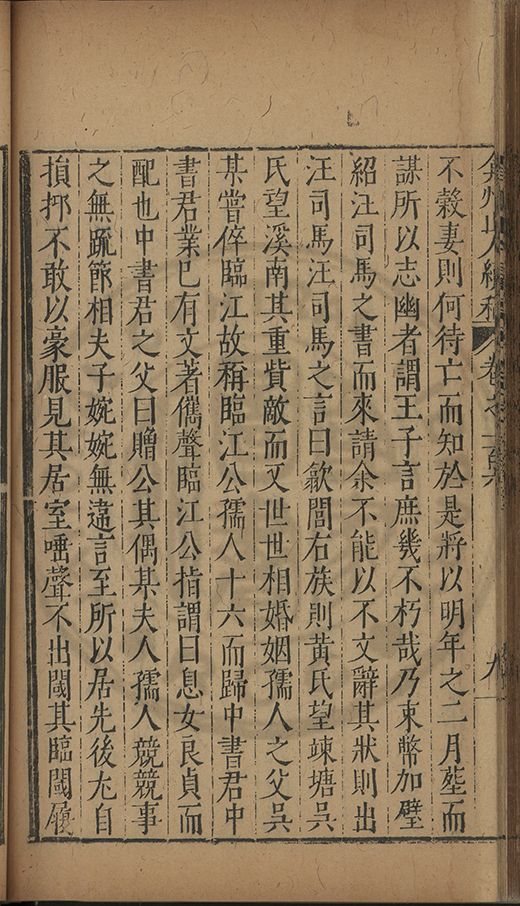 弇州山人續稿 卷之一百 九
不穀妻則何待亡而知於是將以明年之二月塟而
謀所以志幽者謂王子言庶幾不朽哉乃束幣加璧
紹汪司馬之書而來請余不能以不文辭其狀則出
汪司馬汪司馬之言曰歙閭右族則黃氏望竦塘吳
氏望溪南其重貲敵而又世世相婚姻孺人之父吳
某嘗倅臨江故稱臨江公孺人十六而歸中書君中
書君業已有文著儁聲臨江公指謂曰息女良貞而
配也中書君之父曰贈公其偶某夫人孺人競競事
之無疏節相夫子婉婉無違言至所以居先後尤自
損抑不敢以豪服見其居室唾聲不出閾其臨閾履